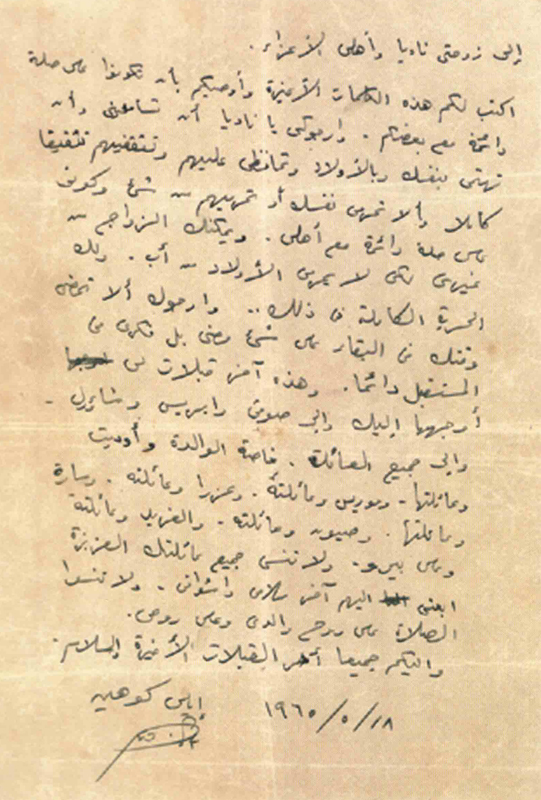 إلى زوجتي ناديا وأهلي الأعزاء.
اكتب لكم هذه الكلمات الأخيرة وأوصيكم بأن تكونوا على صلة
دائمة مع بعضكم. وارجوكي يا ناديا أن تسامحيني وأن
تهتمي بنفسك وبالأولاد وتحافظي عليهم وتثقفيهم تثقيفا
كاملا وألا تحرمي نفسك أو تحرميهم من شيء وكوني
على صلة دائمة مع أهلي. ويمكنك الزواج من
غيري لكي لا يحرم الأولاد من أب. ولك
الحرية الكاملة في ذلك.. وارجوك ألا تمضي
وقتك في البكاء على شيء مضى بل فكري في
المستقبل دائما. وهذه آخر قبلات لي
أوجهها إليك وإلى صوفي وايريس وشاؤول.
وإلى جميع العائلة. خاصة الوالدة وأوديت
وعائلتها. وموريس وعائلته. وعزرا وعائلته. وسارة
وعائلتها. وصيون وعائلته. والفريد وعائلته
ولا تنسي جميع عائلتك العزيزة
ابعثي اليهم آخر سلامي وأشواقي. ولا تنسوا
الصلاة على روح والدي وعلى روحي.
واليكم جميعا آخر القبلات الأخيرة والسلام.
إيلي كوهين
١٩٦٥/٥/١٨